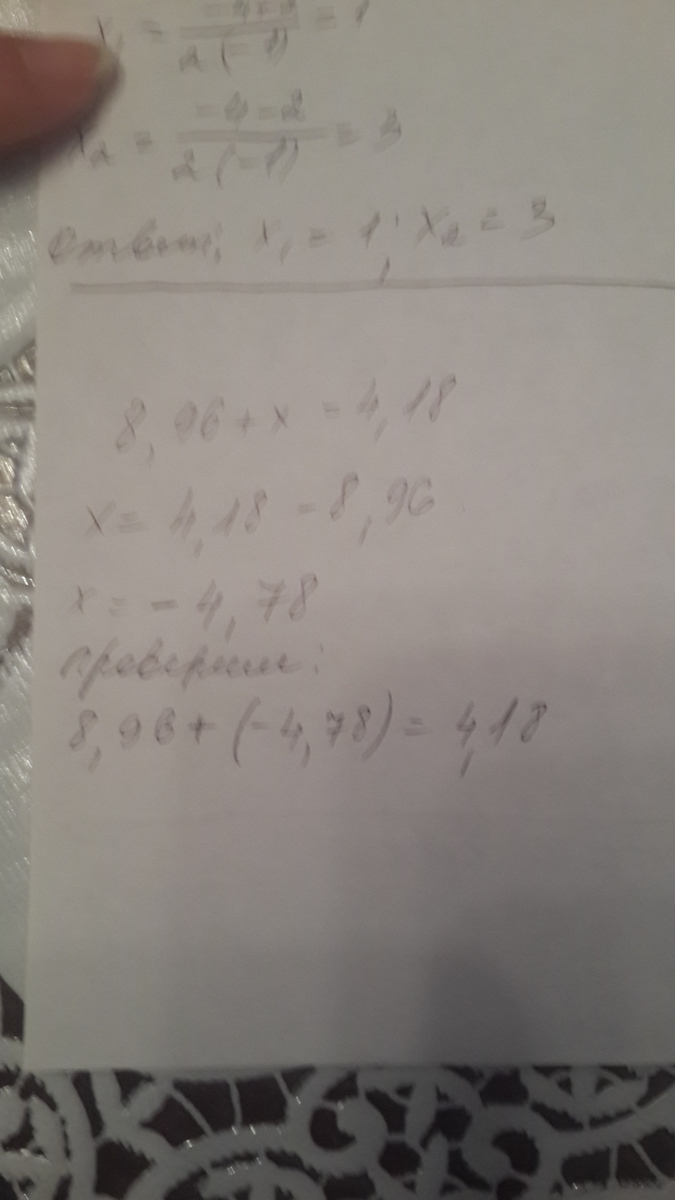 x₁ = (-4+2)/(2(-1)) = 1
x₂ = (-4-2)/(2(-1)) = 3
Ответ: x₁ = 1; x₂ = 3
8,96 + x = 4,18
x = 4,18 - 8,96
x = - 4,78
Проверим:
8,96 + (-4,78) = 4,18